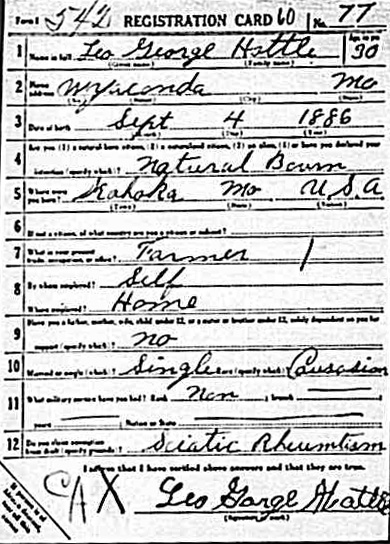 Form 1 542 REGISTRATION CARD 60 No. 77
1 Name in full Leo George Hottle Age, in yrs. 30
(Given name) (Family name)
2 Home address Wyaconda Mo
(No.) (Street) (City) (State)
3 Date of birth Sept 4 1886
(Month) (Day) (Year)
Are you (1) a natural born citizen, (2) a naturalized citizen, (3) an alien, (4) or have you declared your
4 intention (specify which)? Natural Bourn
5 Where were you born? Kahoka Mo U.S.A
(Town) (State) (Nation)
6 If not a citizen, of what country are you a citizen or subject?
7 What is your present trade, occupation, or office? Farmer
8 By whom employed? Self
Where employed? Home
Have you a father, mother, wife, child under 12, or a sister or brother under 12, solely dependent on you for
9 support (specify which)? no
10 Married or single (which)? Single Race (specify which)? Causasion
11 What military service have you had? Rank Non ; branch
years ; Nation or State
12 Do you claim exemption from draft (specify grounds)? Sciatic Rheumtism
I affirm that I have verified above answers and that they are true.
X Leo Gorge Hottle
(Signature or mark)